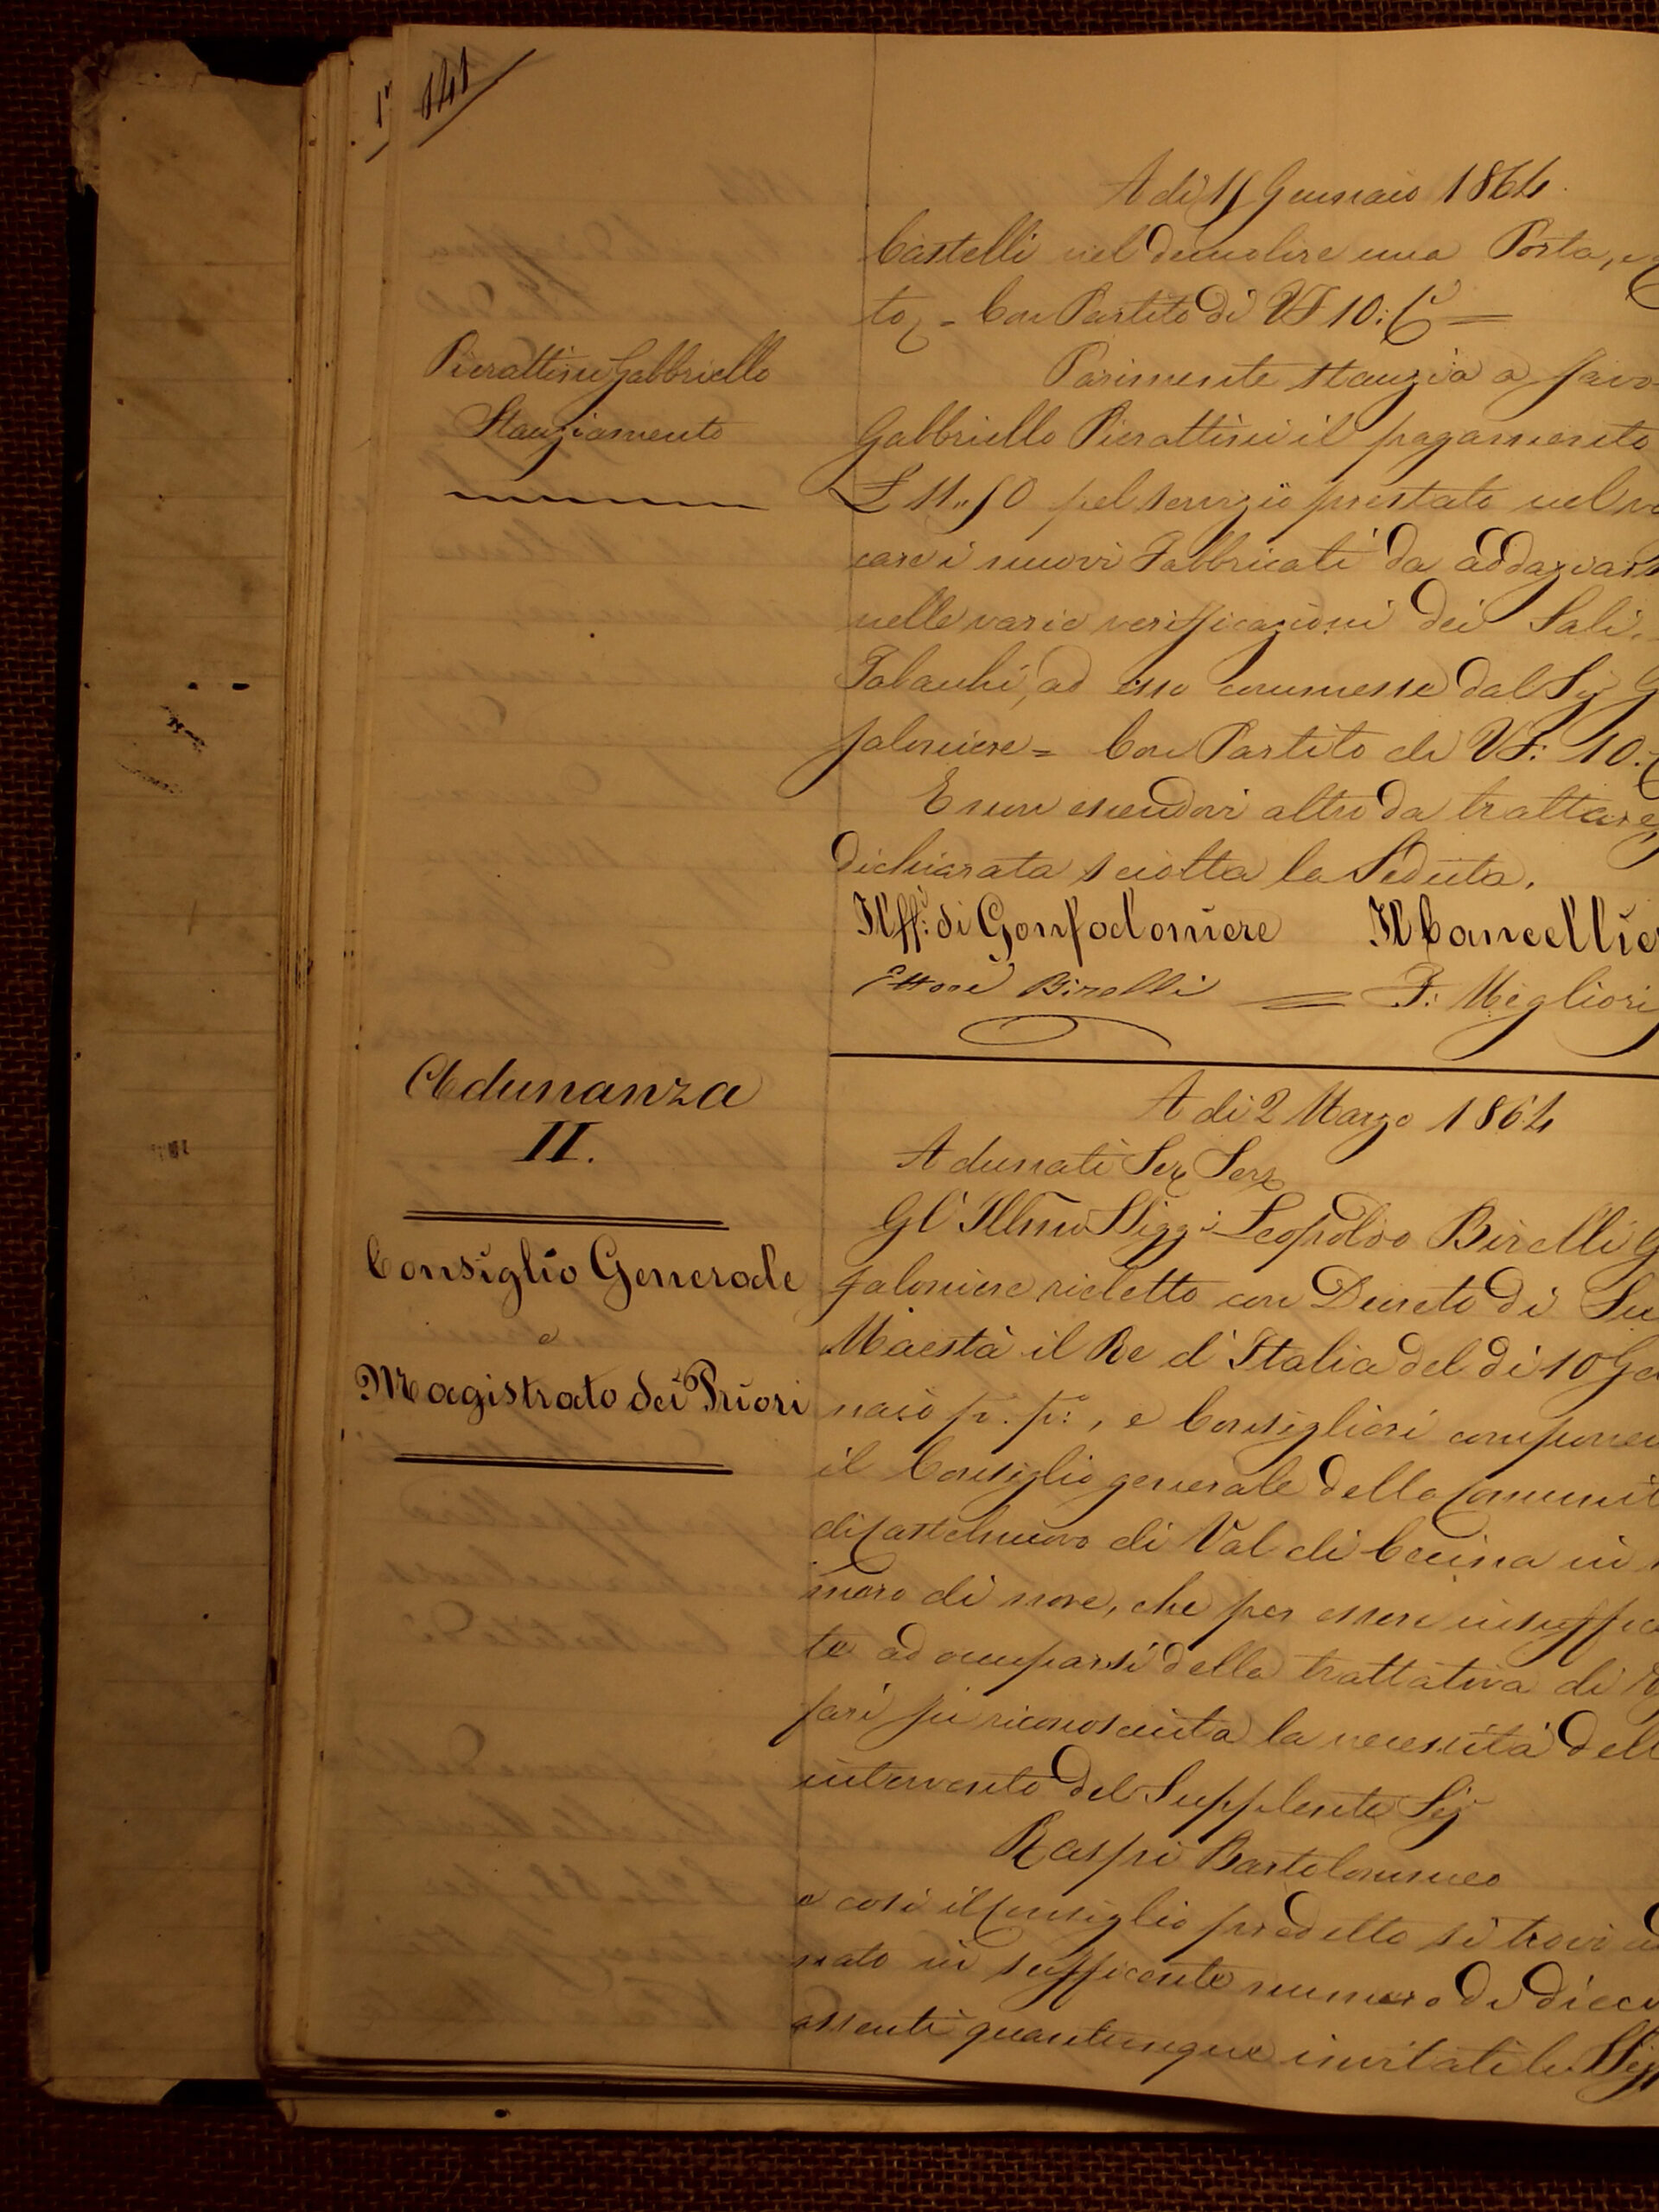 141
A dì 15 Gennaio 1864.
Castelli nel demolire una Porta, e
to, = Con Partito di VF 10: C
Pierattini Gabbriello
Stanziamento
Parimente stanzia a favo
Gabbriello Pierattini il pagamento
£ 11,,50 pel servizio prestato nel
care i nuovi Fabbricati da addaziars
nelle varie verificazioni dei Sali,
Tabacchi, ad esso commesse dal Sig G
faloniere = Con Partito di VF: 10:
E non essendovi altro da trattare
dichiarata sciolta la Seduta.
Il ff: di Gonfaloniere Il Cancellie
Ettore Birelli = F: Migliori
Adunanza
II.
Consiglio Generale
e
Magistrato dei Priori
A dì 2 Marzo 1864
Adunati Ser Ser
Gl' Illmi Sigg: Leopoldo Birelli G
faloniere rieletto con Decreto di Su
Maestà il Re d'Italia del dì 10 Gen
naio p. p:, e Consiglieri componen
il Consiglio generale della Comunit
di Castelnuovo di Val di Cecina in
mero di nove, che per essere insuffice
te ad occuparsi della trattativa di
fari fu riconosciuta la necessità dell
intervento del Supplente Sig
Raspi Bartolommeo
e così il Consiglio predetto si trovò ad
nato in sufficente numero di dieci
assenti quantunque invitati li Sigg